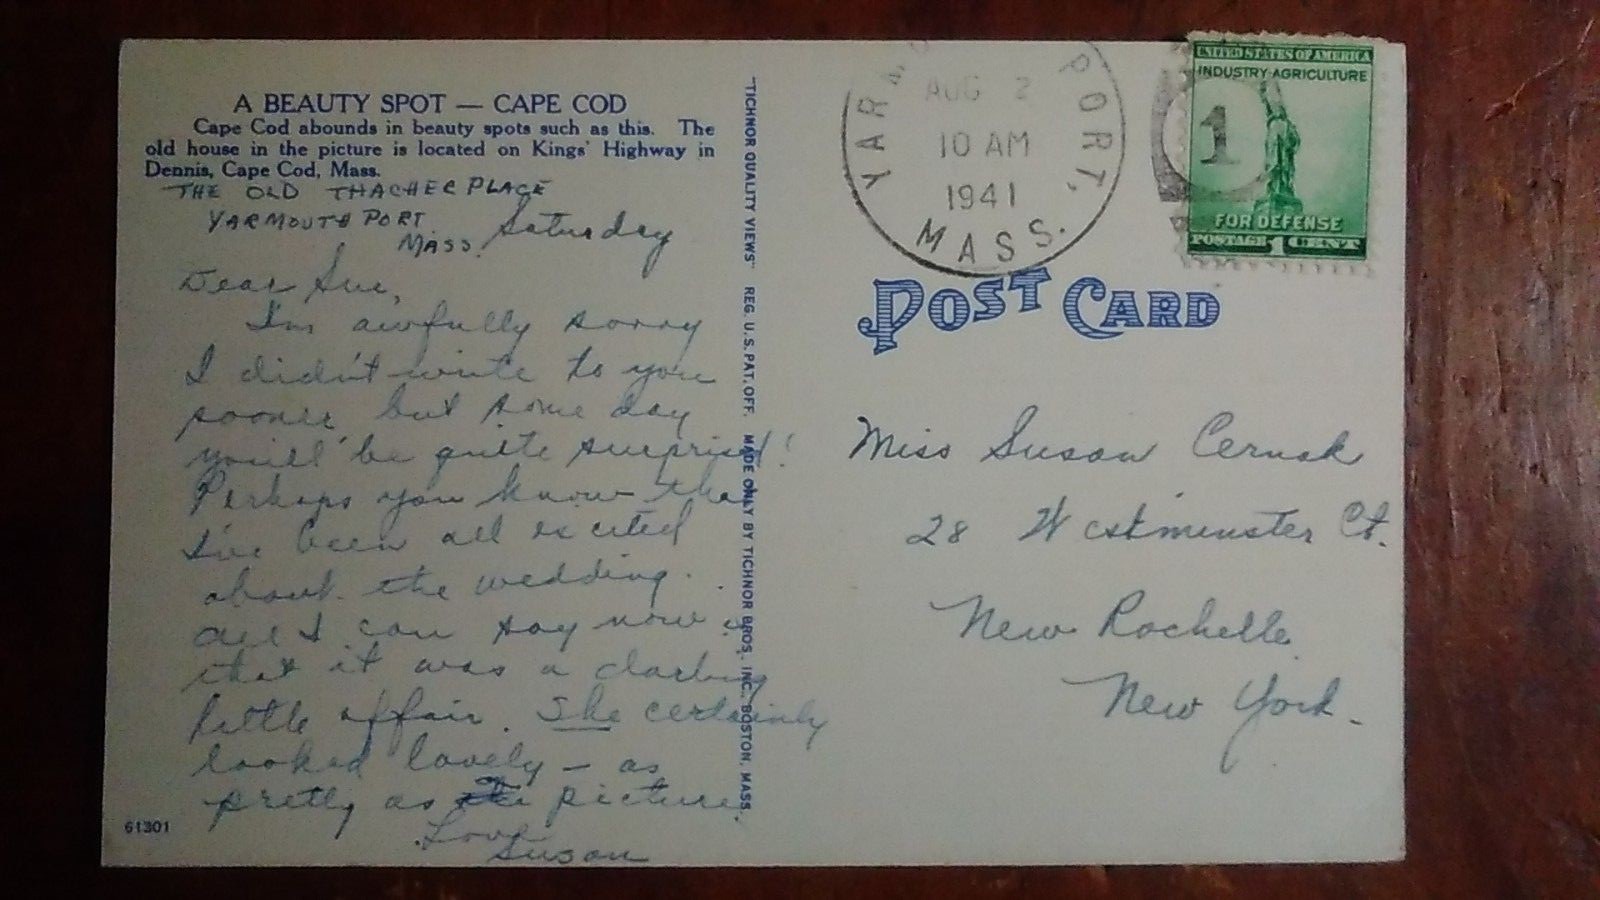 A BEAUTY SPOT — CAPE COD
Cape Cod abounds in beauty spots such as this. The
old house in the picture is located on Kings' Highway in
Dennis, Cape Cod, Mass.
THE OLD THACHER PLACE
YARMOUTH PORT
MASS.
Saturday
Dear Sue,
I'm awfully sorry
I didn't write to you
sooner but some day
you'll be quite surprised!
Perhaps you know that
I've been all excited
about the wedding.
All I can say now is
that it was a darling
little affair. She certainly
looked lovely — as
pretty as a picture.
Love
Susan
61301
"TICHNOR QUALITY VIEWS" REG. U.S. PAT. OFF. MADE ONLY BY TICHNOR BROS., INC., BOSTON, MASS.
PORT,
AUG 2
10 AM
1941
MASS.
UNITED STATES OF AMERICA
INDUSTRY AGRICULTURE
1
FOR DEFENSE
POSTAGE 1 CENT
POST CARD
Miss Susan Cernak
28 Westminster Ct.
New Rochelle
New York.